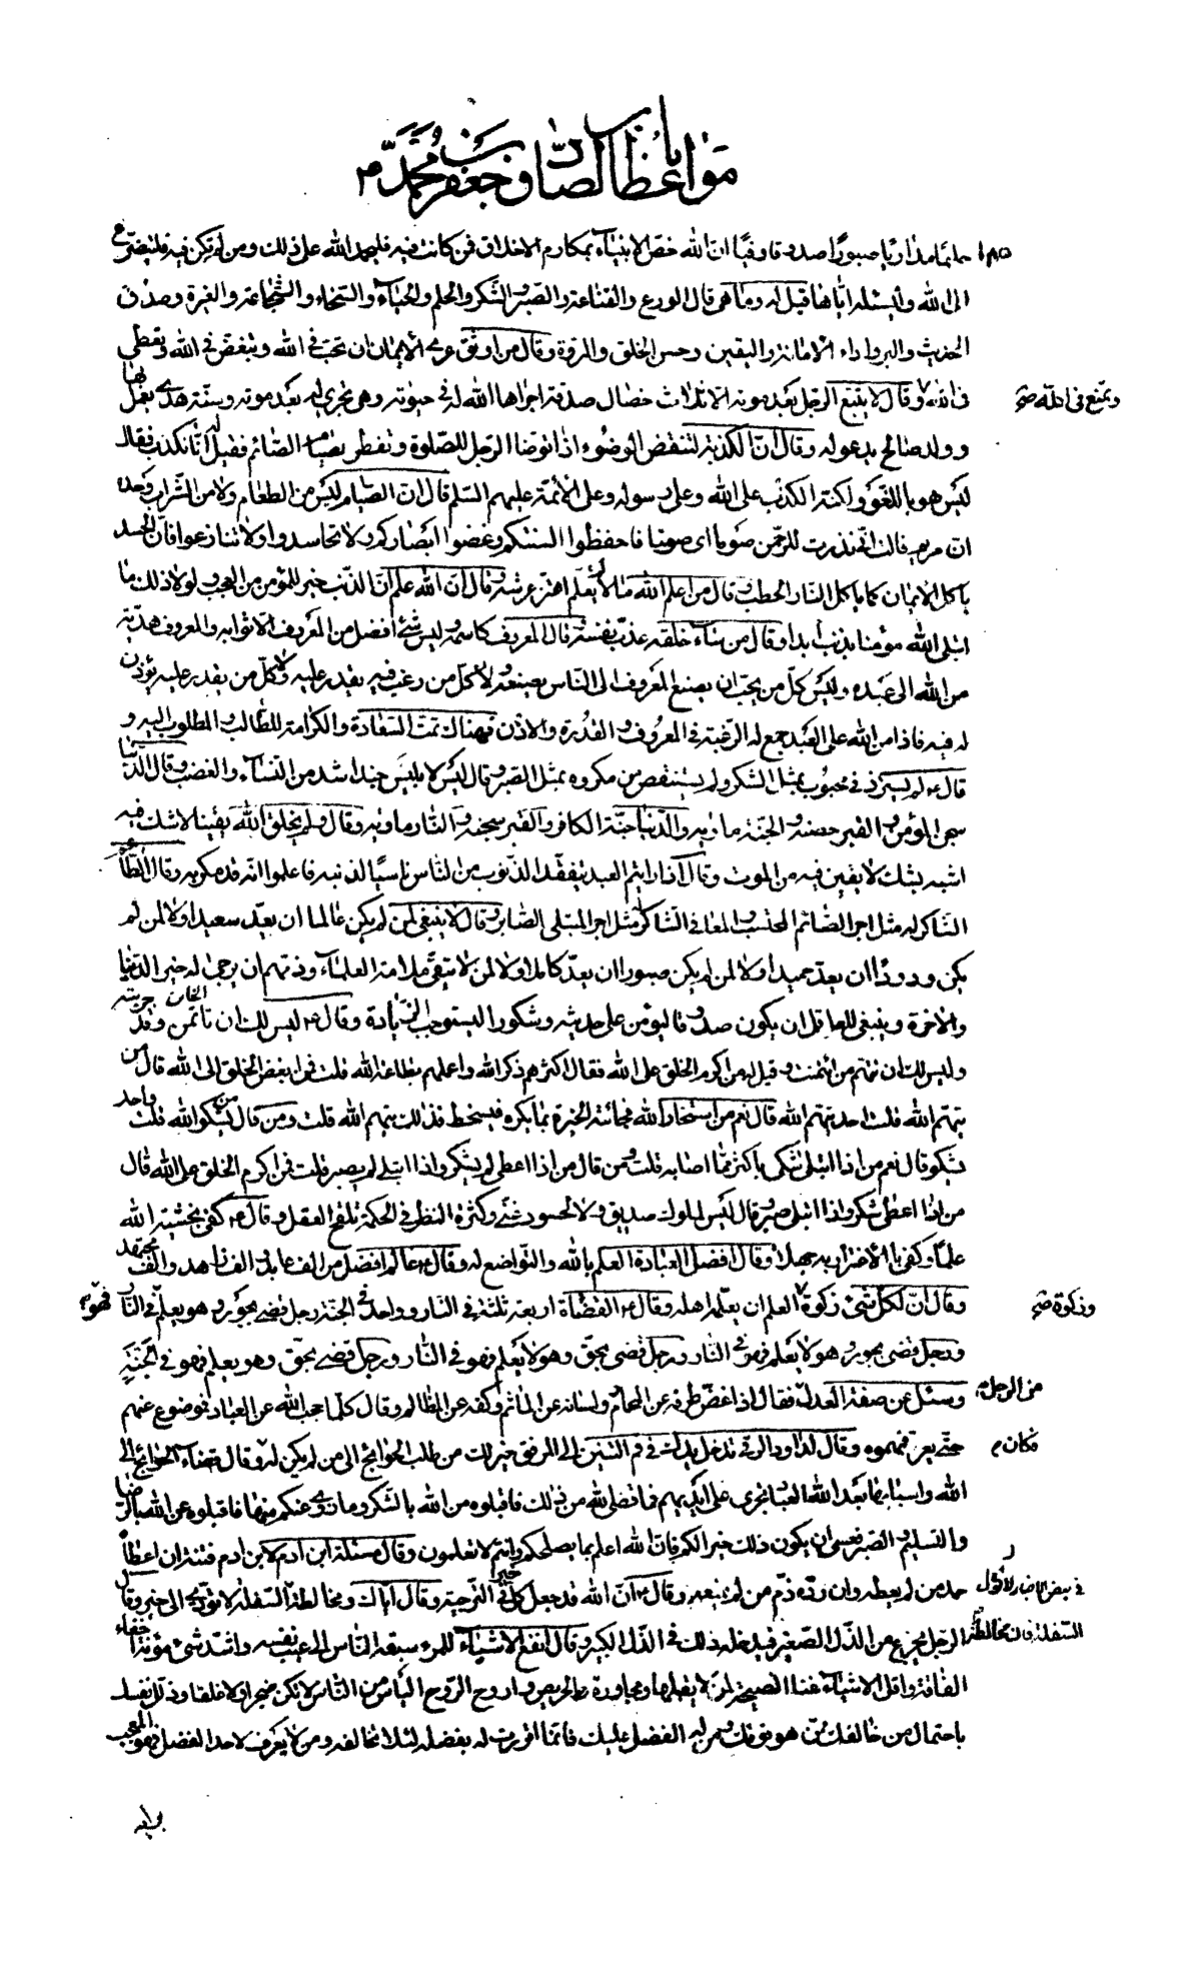 باب مواعظ الصادق جعفر بن محمد ع
حليما مداريا صبورا صدوقا وفيا ان الله خص الانبياء بمكارم الاخلاق فمن كانت فيه فليحمد الله على ذلك ومن لم تكن فيه فليتضرع
الى الله وليسئله اياها قيل له وما هى قال الورع والقناعة والصبر والشكر والحلم والحياء والسخاء والشجاعة والغيرة وصدق
الحديث والبر واداء الامانة واليقين وحسن الخلق والمروة وقال من اوثق عرى الايمان ان تحب فى الله وتبغض فى الله وتعطى
فى الله وقال لا يتبع الرجل بعد موته الا ثلاث خصال صدقة اجراها الله له فى حيوته وهى تجرى له بعد موته وسنة هدى يعمل بها
وولد صالح يدعو له وقال ان الكذبة لتنقض الوضوء اذا توضا الرجل للصلوة وتفطر الصيام فقيل له انا نكذب فقال
ليس هو باللغو ولكنه الكذب على الله وعلى رسوله وعلى الائمة عليهم السلم قال ان الصيام ليس من الطعام ولا من الشراب وحده
ان مريم قالت انى نذرت للرحمن صوما اى صمتا فاحفظوا السنتكم وغضوا ابصاركم ولا تحاسدوا ولا تنازعوا فان الحسد
ياكل الايمان كما ياكل النار الحطب وقال من اعلم الله ما لا يعلم اهتز عرشه وقال ان الله علم ان الذنب خير للمؤمن من العجب ولولا ذلك ما
ابتلى الله مؤمنا بذنب ابدا وقال من ساء خلقه عذب نفسه قال المعروف كاسمه وليس شئ افضل من المعروف الا ثوابه والمعروف هدية
من الله الى عبده وليس كل من يحب ان يصنع المعروف الى الناس يصنعه ولا كل من رغب فيه يقدر عليه ولا كل من يقدر عليه يؤذن
له فيه فاذا من الله على العبد جمع له الرغبة فى المعروف والقدرة والاذن فهناك تمت السعادة والكرامة للطالب والمطلوب اليه و
قال ع لم يستزد فى محبوب بمثل الشكر ولم يستنقص من مكروه بمثل الصبر وقال ليس لابليس جند اشد من النساء والغضب وقال الدنيا
سجن المؤمن والقبر حصنه والجنة ماويه والدنيا جنة الكافر والقبر سجنه والنار ماويه وقال ولم يخلق الله يقينا لا شك فيه
اشبه بشك لا يقين فيه من الموت وقال اذا رايتم العبد يتفقد الذنوب من الناس ناسيا لذنبه فاعلموا انه قد مكر به وقال الطاعم
الشاكر له مثل اجر الصائم المحتسب والمعافى الشاكر له مثل اجر المبتلى الصابر وقال لا ينبغى لمن لم يكن عالما ان يعد سعيدا ولا لمن لم
يكن ودودا ان يعد حميدا ولا لمن لم يكن صبورا ان يعد كاملا ولا لمن لا يتقى ملامة العلماء وذمهم ان يرجى له خير الدنيا
والاخرة وينبغى للعاقل ان يكون صدوقا ليؤمن على حديثه وشكورا ليستوجب الزيادة وقال ع ليس لك ان تاتمن الخائن وقد جربته
وليس لك ان تتهم من ائتمنت وقيل له من اكرم الخلق على الله فقال اكثرهم ذكر الله واعملهم بطاعة الله قلت فمن ابغض الخلق الى الله قال من
يتهم الله قلت احد يتهم الله قال نعم من استخار الله فجائته الخيرة بما يكره فيسخط فذلك يتهم الله قلت ومن قال يشكو الله قلت واحد
يشكوه قال نعم من اذا ابتلى شكى باكثر مما اصابه قلت ومن قال من اذا اعطى لم يشكر واذا ابتلى لم يصبر قلت فمن اكرم الخلق على الله قال
من اذا اعطى شكر واذا ابتلى صبر وقال ليس لملوك صديق ولا لحسود غنى وكثرة النظر فى الحكمة تلقح العقل وقال ع كفى بخشية الله
علما وكفى بالاغترار به جهلا وقال افضل العبادة العلم بالله والتواضع له وقال ع عالم افضل من الف عابد والف زاهد والف مجتهد
وقال ان لكل شئ زكوة وزكوة العلم ان يعلمه اهله وقال ع القضاة اربعة ثلثة فى النار وواحد فى الجنة رجل قضى بجور وهو يعلم فهو فى النار
ورجل قضى بجور وهو لا يعلم فهو فى النار ورجل قضى بحق وهو لا يعلم فهو فى النار ورجل قضى بحق وهو يعلم فهو فى الجنة
وسئل عن صفة العدل من الرجل فقال اذا غض طرفه عن المحارم ولسانه عن الماثم وكفه عن المظالم وقال كلما حجب الله عن العباد فموضوع عنهم
حتى يعرفهموه وقال لداود الرقى تدخل يدك فى فم التنين الى المرفق خير لك من طلب الحوائج الى من لم يكن له وكان وقال قضاء الحوائج الى
الله واسبابها بعد الله العباد تجرى على ايديهم فما قضى الله من ذلك فاقبلوه من الله بالشكر وما زوى عنكم منها فاقبلوه عن الله بالرضا
والتسليم والصبر فعسى ان يكون ذلك خيرا لكم فان الله اعلم بما يصلحكم وانتم لا تعلمون وقال مسئلة ابن ادم لابن ادم فتنة ان اعطاه
حمد من لم يعطه وان رده ذم من لم يمنعه وقال ع ان الله قد جعل كل خير فى التزجية وقال اياك ومخالطة السفلة فان مخالطة السفلة لا تؤدى الى خير وقال
الرجل يجزع من الذل الصغير فيدخله ذلك فى الذل الكبير وقال انفع الاشياء للمرء سبقه الناس الى عيب نفسه واشد شئ مؤنة اخفاء
الفاقة واقل الاشياء غناء النصيحة لمن لا يقبلها ومجاورة الحريص واروح الروح الياس من الناس لا تكن ضجرا ولا غلقا وذلل نفسك
باحتمال من خالفك ممن هو فوقك ومن له الفضل عليك فانما اقررت له بفضله لئلا تخالفه ومن لا يعرف لاحد الفضل فهو المعجب
برايه